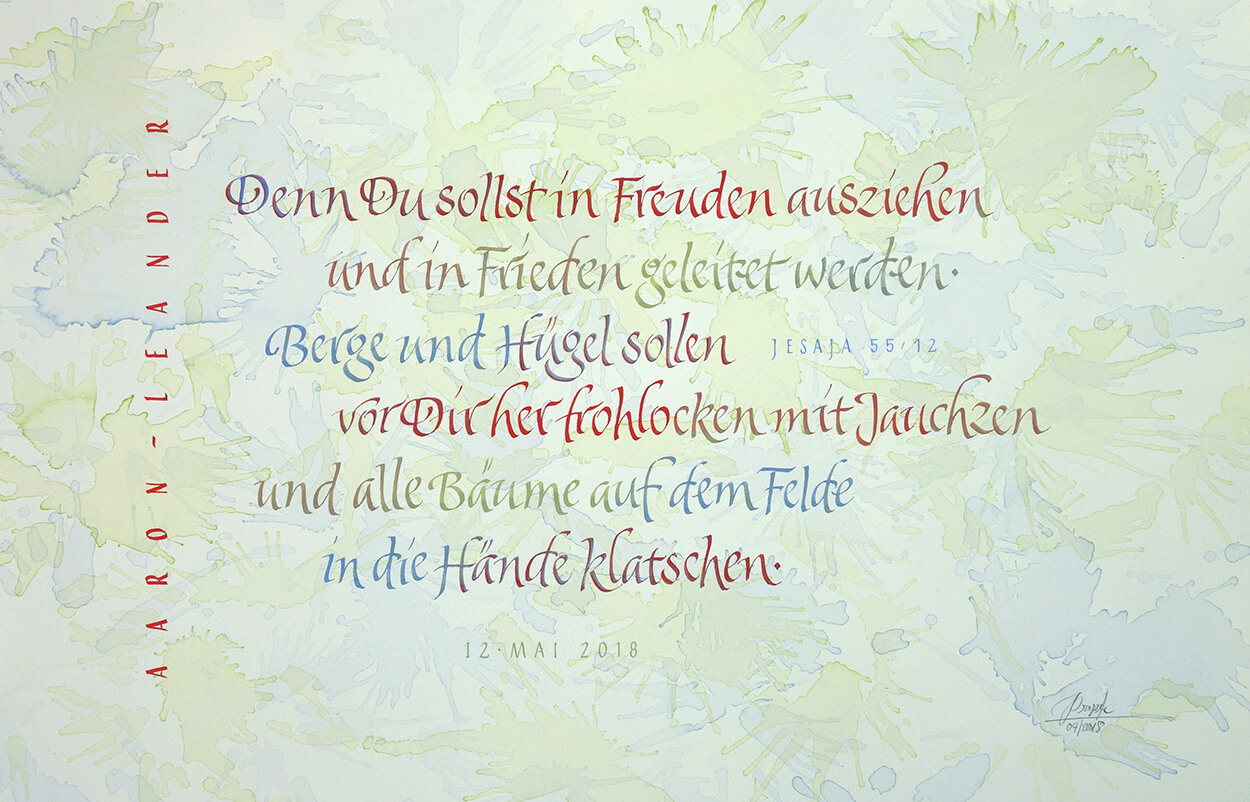 AARON-LEANDER
Denn Du sollst in Freuden ausziehen
und in Frieden geleitet werden·
Berge und Hügel sollen
JESAJA 55/12
vor Dir her frohlocken mit Jauchzen
und alle Bäume auf dem Felde
in die Hände klatschen·
12·MAI 2018
04/2018